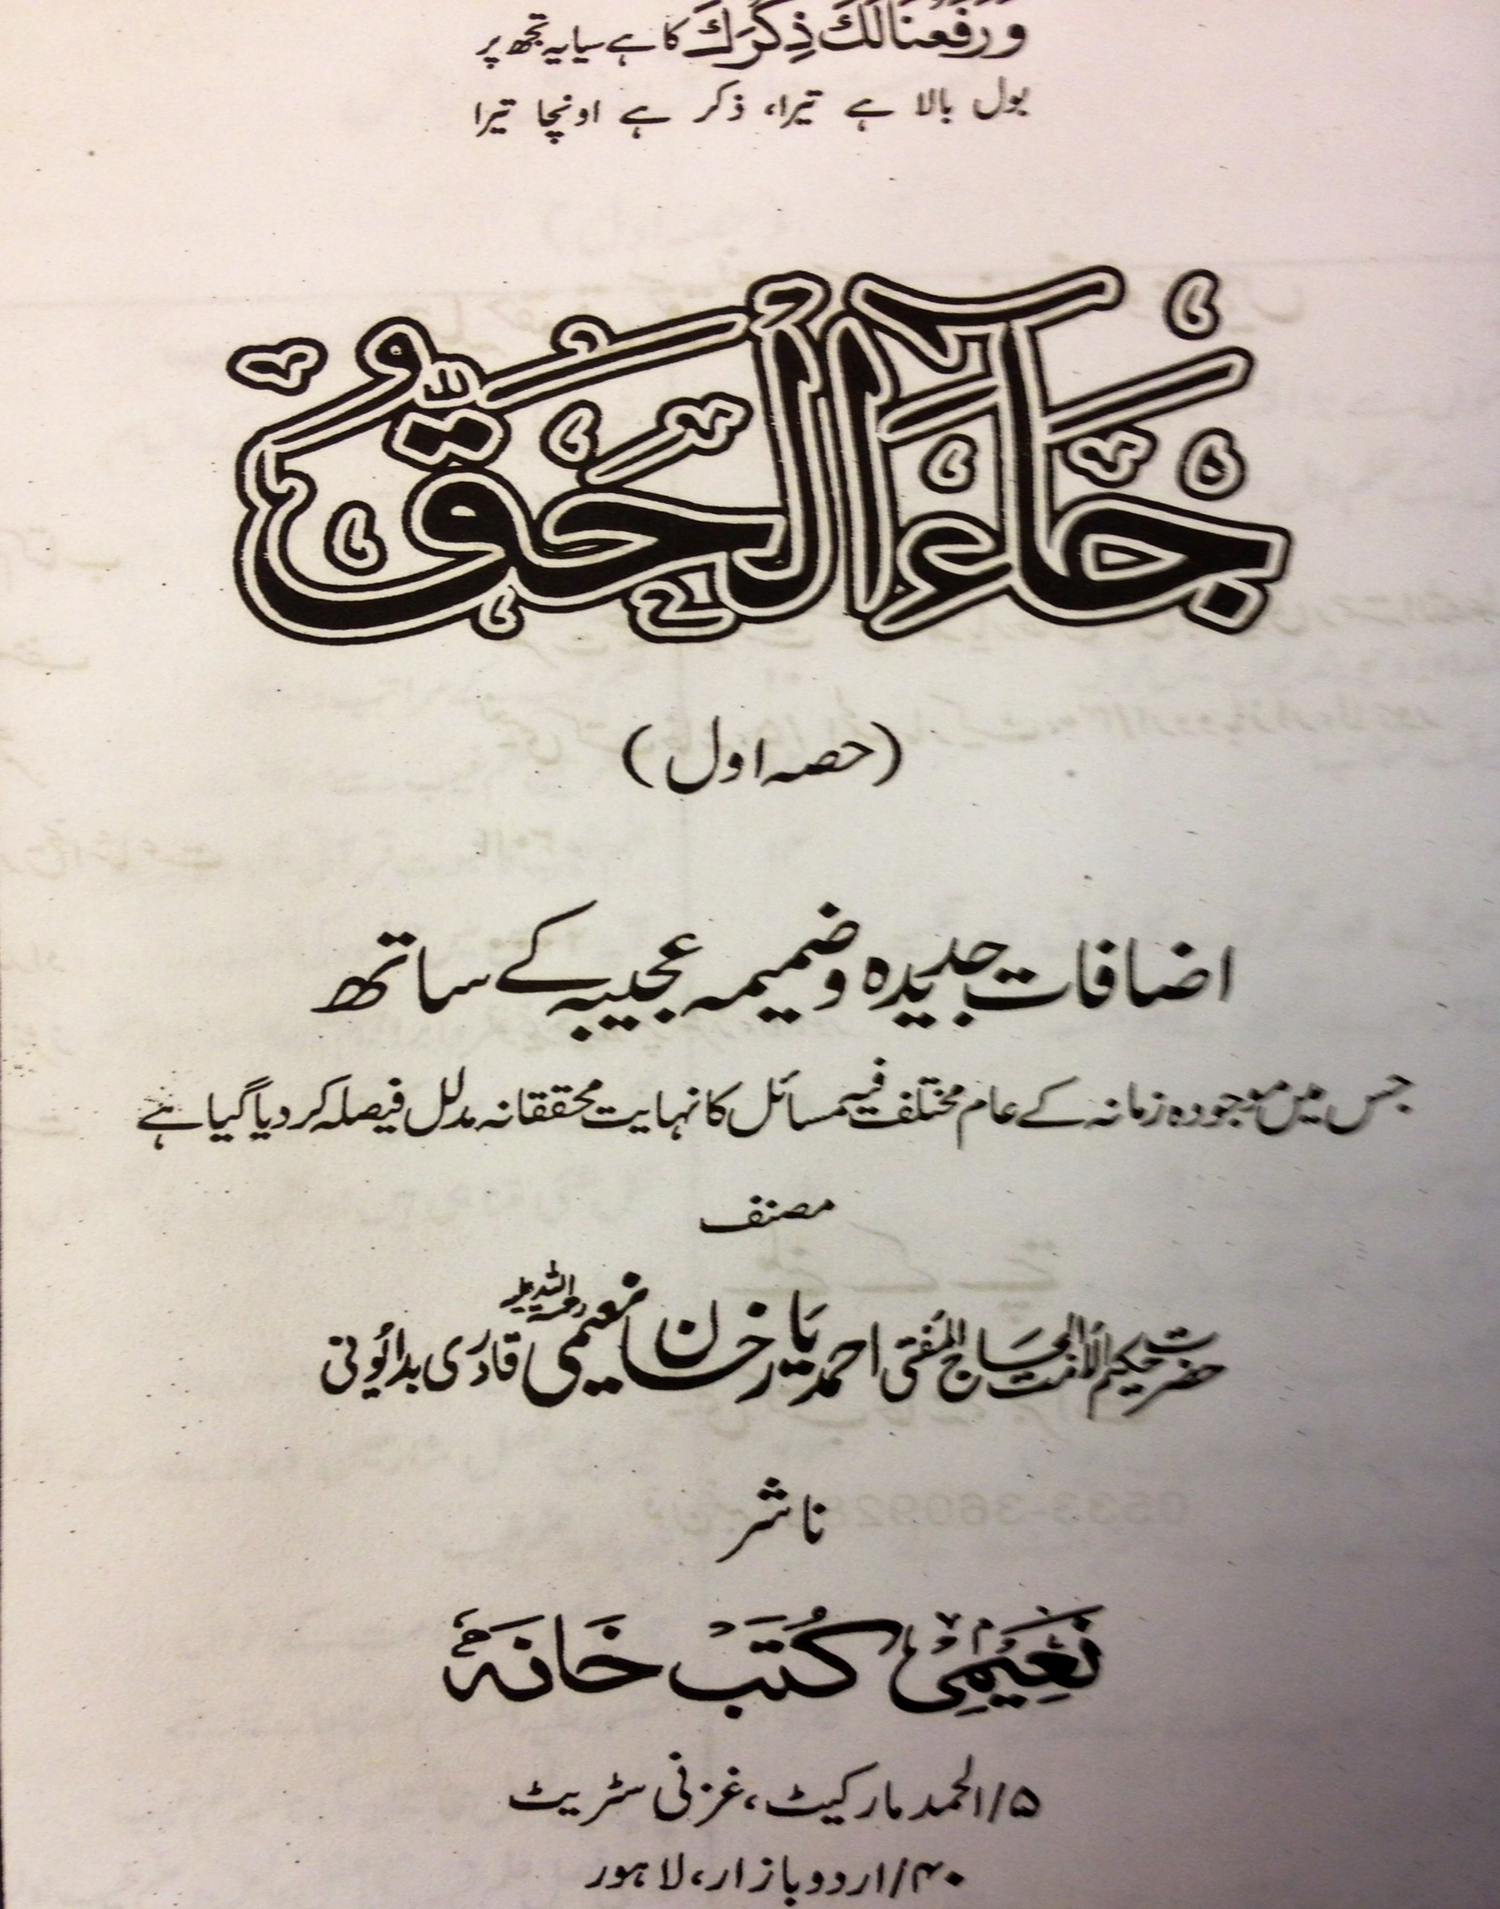 وَرَفَعْنَا لَكَ ذِكْرَكَ کا ہے سایہ تجھ پر
بول بالا ہے تیرا، ذکر ہے اونچا تیرا
جَآءَ الْحَقُّ
(حصہ اول)
اضافات جدیدہ و ضمیمہ عجیبہ کے ساتھ
جس میں موجودہ زمانہ کے عام مختلف فیہ مسائل کا نہایت محققانہ مدلل فیصلہ کر دیا گیا ہے
مصنف
حضرت حکیم الاُمت الحاج المُفتی احمد یار خان نعیمی رحمۃ اللہ علیہ قادری بدایُونی
ناشر
نَعِیمِی کُتب خَانَہ
۵/الحمد مارکیٹ، غزنی سٹریٹ
۴۰/اردو بازار، لاہور